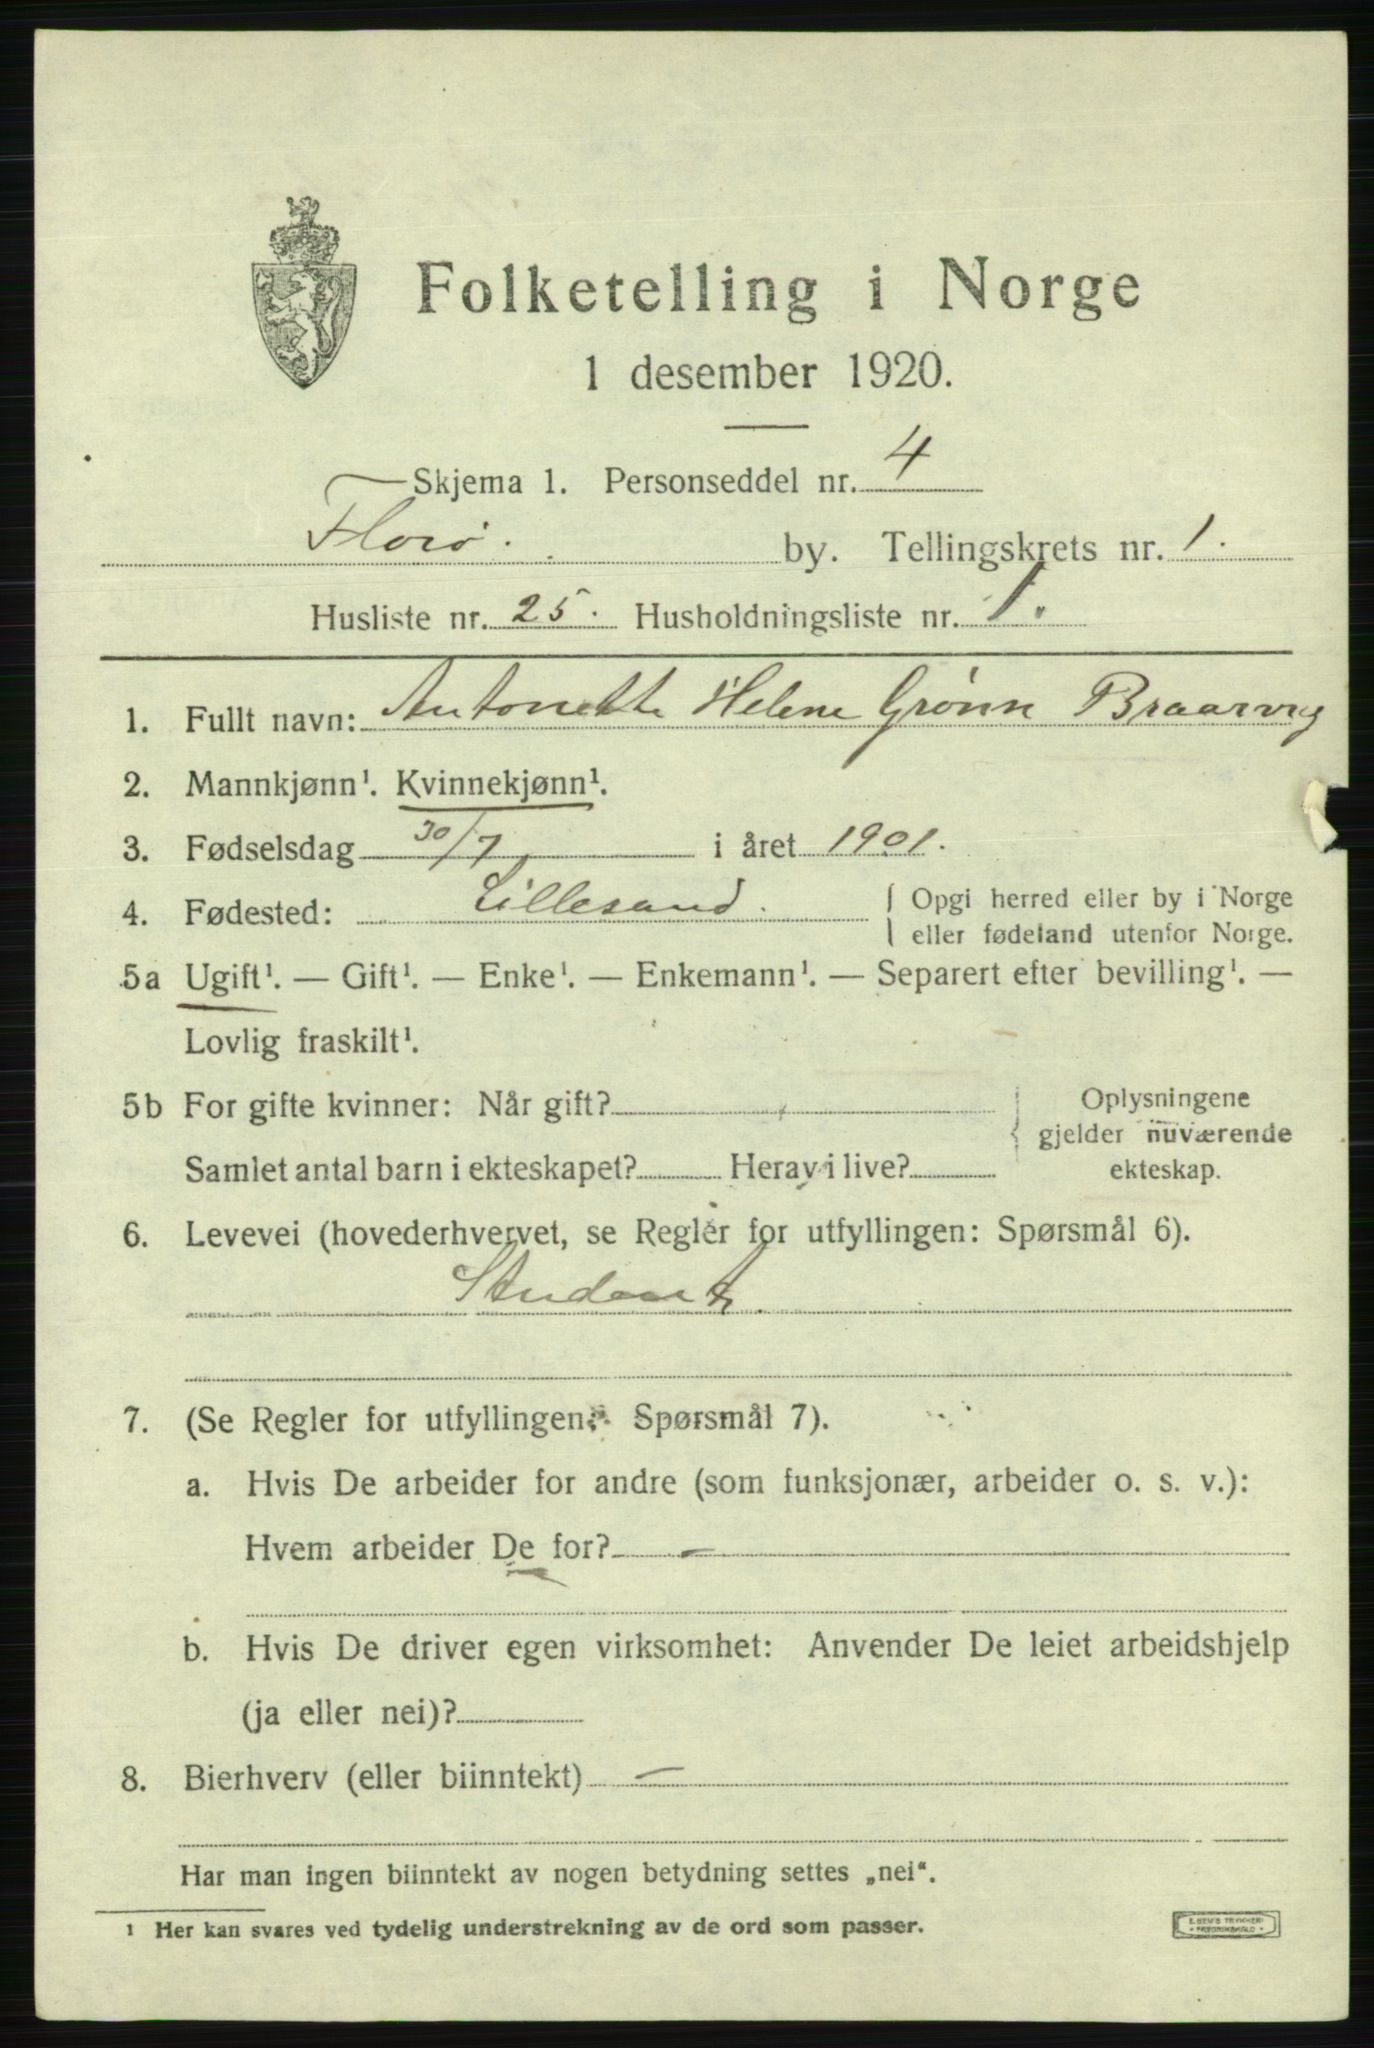 Folketelling i Norge
1 desember 1920.
Skjema 1. Personseddel nr. 4
Florø. by. Tellingskrets nr. 1.
Husliste nr. 25. Husholdningsliste nr. 1.
1. Fullt navn: Antonette Helene Grønn Braarvig
2. Mannkjønn¹. Kvinnekjønn¹.
3. Fødselsdag 30/7 i året 1901.
4. Fødested: Lillesand. { Opgi herred eller by i Norge
eller fødeland utenfor Norge.
5a Ugift¹. — Gift¹. — Enke¹. — Enkemann¹. — Separert efter bevilling¹. —
Lovlig fraskilt¹.
5b For gifte kvinner: Når gift? { Oplysningene
gjelder nuværende
Samlet antal barn i ekteskapet? Herav i live? ekteskap.
6. Levevei (hovederhvervet, se Regler for utfyllingen: Spørsmål 6).
Student.
7. (Se Regler for utfyllingen: Spørsmål 7).
a. Hvis De arbeider for andre (som funksjonær, arbeider o. s. v.):
Hvem arbeider De for? —
b. Hvis De driver egen virksomhet: Anvender De leiet arbeidshjelp
(ja eller nei)?
8. Bierhverv (eller biinntekt) —
Har man ingen biinntekt av nogen betydning settes „nei“.
¹ Her kan svares ved tydelig understrekning av de ord som passer.